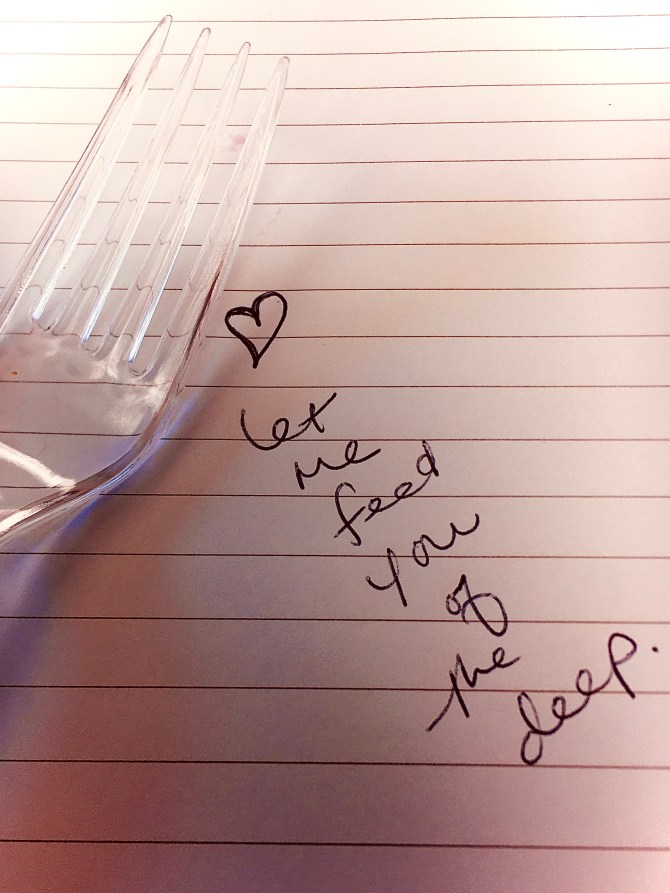 Let
me
feed
you
of
the
deep.